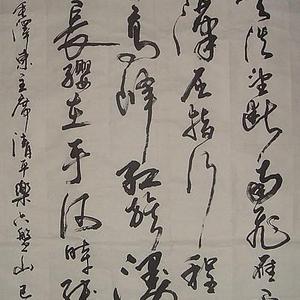 淡望断南飛雁
漢屈指行程
高峰紅旗漫
長纓在手何時縛
毛澤東主席清平樂六盤山